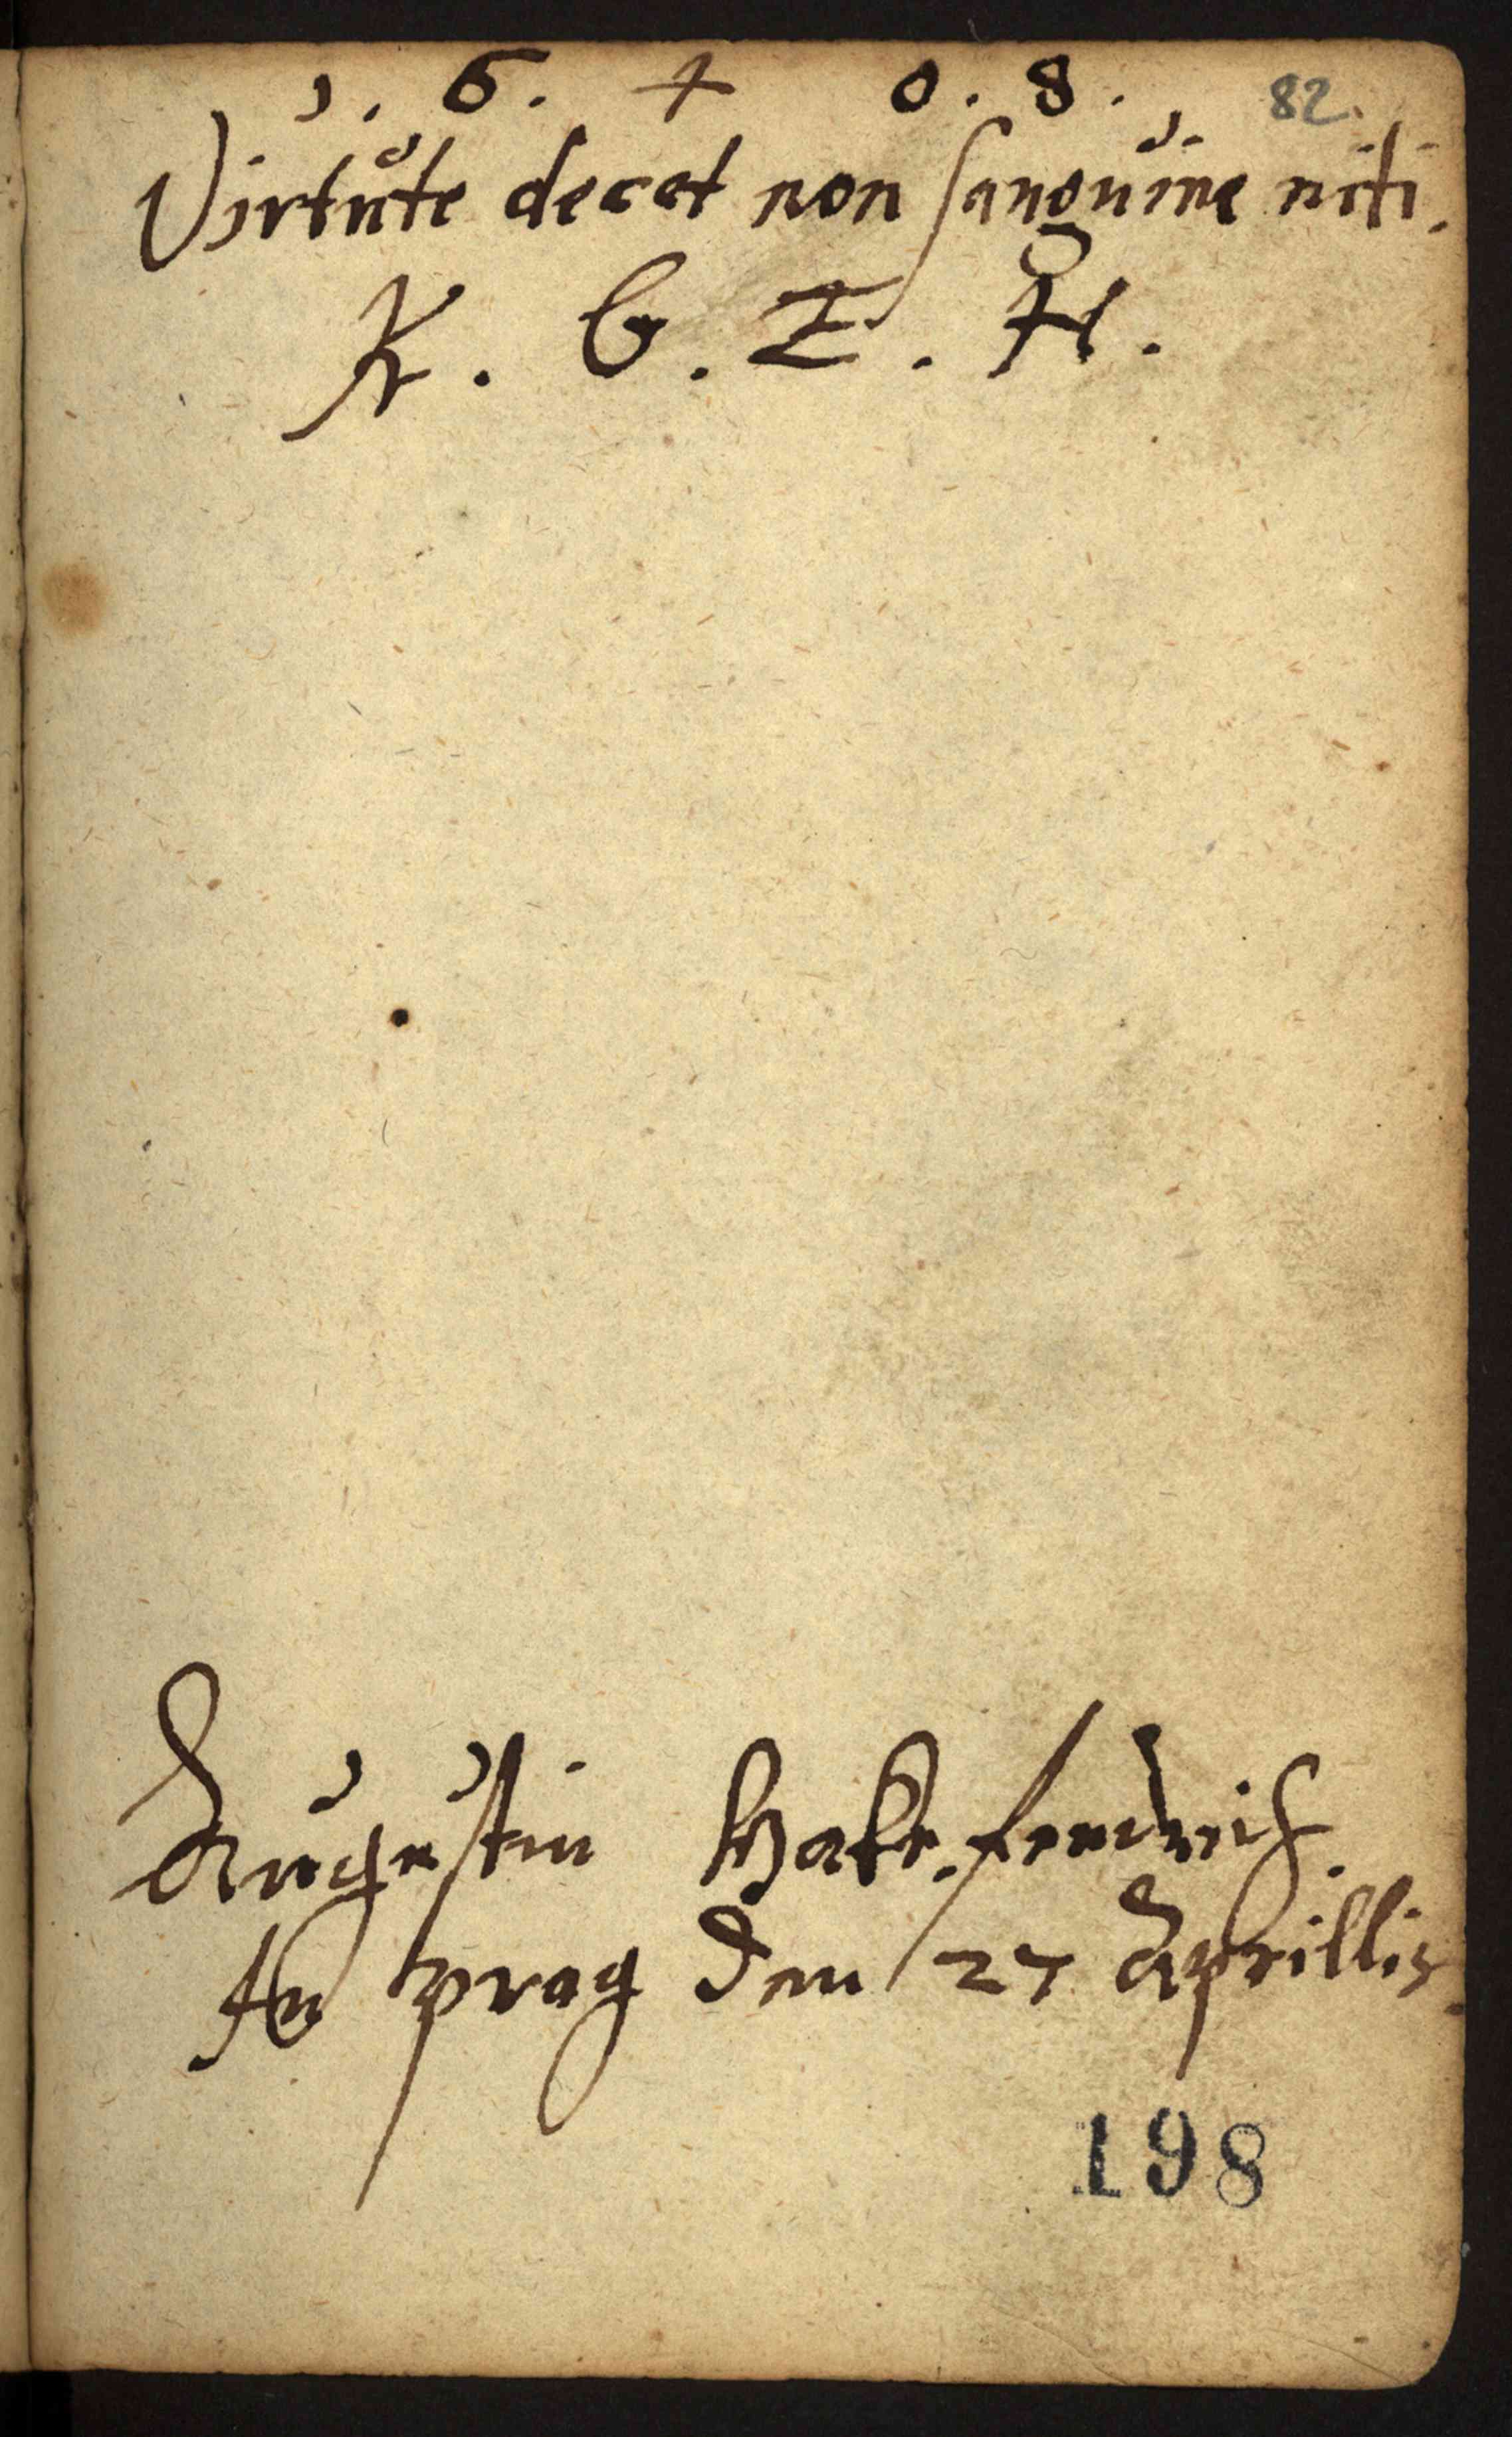 1. 6. + 0. 8. 82.
Virtute decet non sanguine niti.
K. G. Z. H.
Augustin Hake. fendrich.
In prag den 27 Aprillis.
198